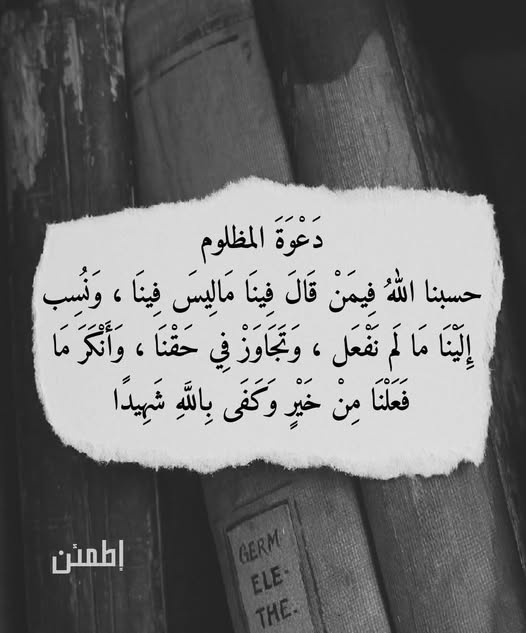 دَعْوَةَ المظلوم
حسبنا اللهُ فِيمَنْ قَالَ فِينَا مَالِيسَ فِينَا ، وَنُسِب
إِلَيْنَا مَا لَم نَفْعَل ، وَتَجَاوَزْ فِي حَقْنَا ، وَأَنْكَرَ مَا
فَعَلْنَا مِنْ خَيْرٍ وَكَفَى بِاللَّهِ شَهِيدًا
إطمئن
GERM
ELE-
THE-